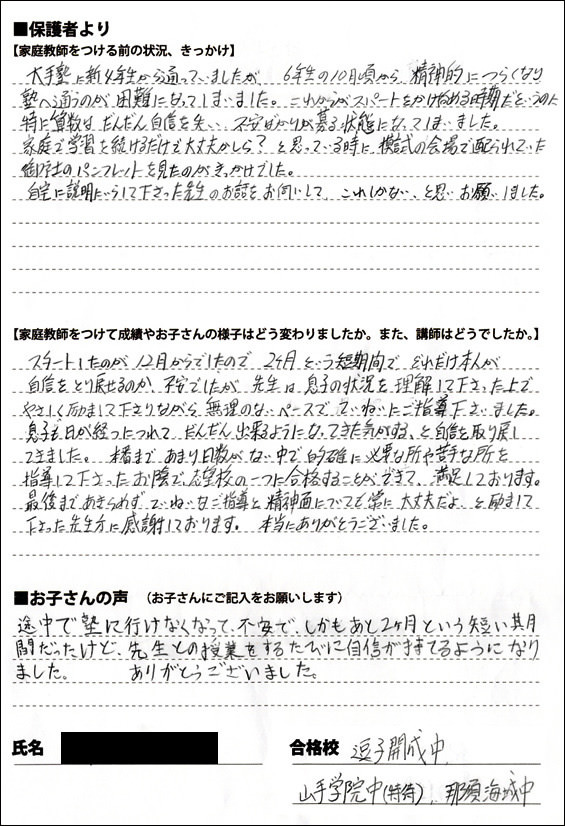 ■保護者より
【家庭教師をつける前の状況、きっかけ】
大手塾に新4年生から通っていましたが、6年生の10月頃から精神的につらくなり
塾へ通うのが困難になってしまいました。これからがスパートをかけ始める時期だというのに
特に算数はだんだん自信を失い、不安ばかりが募る状態になってしまいました。
家庭で学習を続けるだけで大丈夫かしら?と思っている時に、模試の会場で配られていた
御社のパンフレットを見たのがきっかけでした。
自宅に説明にいらして下さった先生のお話をお伺いして、これしかない、と思いお願いしました。
【家庭教師をつけて成績やお子さんの様子はどう変わりましたか。また、講師はどうでしたか。】
スタートしたのが12月からでしたので2ヶ月という短期間でどれだけ本人が
自信をとり戻せるのか、不安でしたが、先生は息子の状況を理解して下さった上で
やさしく励まして下さりながら無理のないペースでていねいにご指導下さいました。
息子も日が経つにつれて だんだん出来るようになってきた気がする、と自信を取り戻し
てきました。本番まであまり日数がない中で的確に必要な所や苦手な所を
指導して下さったお陰で志望校の一つに合格することができて、満足しております。
最後まであきらめず ていねいなご指導と精神面についても常に大丈夫だよ、と励まして
下さった先生方に感謝しております。本当にありがとうございました。
■お子さんの声 (お子さんにご記入をお願いします)
途中で塾に行けなくなって、不安で、しかもあと2ヶ月という短い期
間だったけど、先生との授業をするたびに自信が持てるようになり
ました。 ありがとうございました。
氏名 合格校 逗子開成中、
山手学院中(特待)、那須海城中